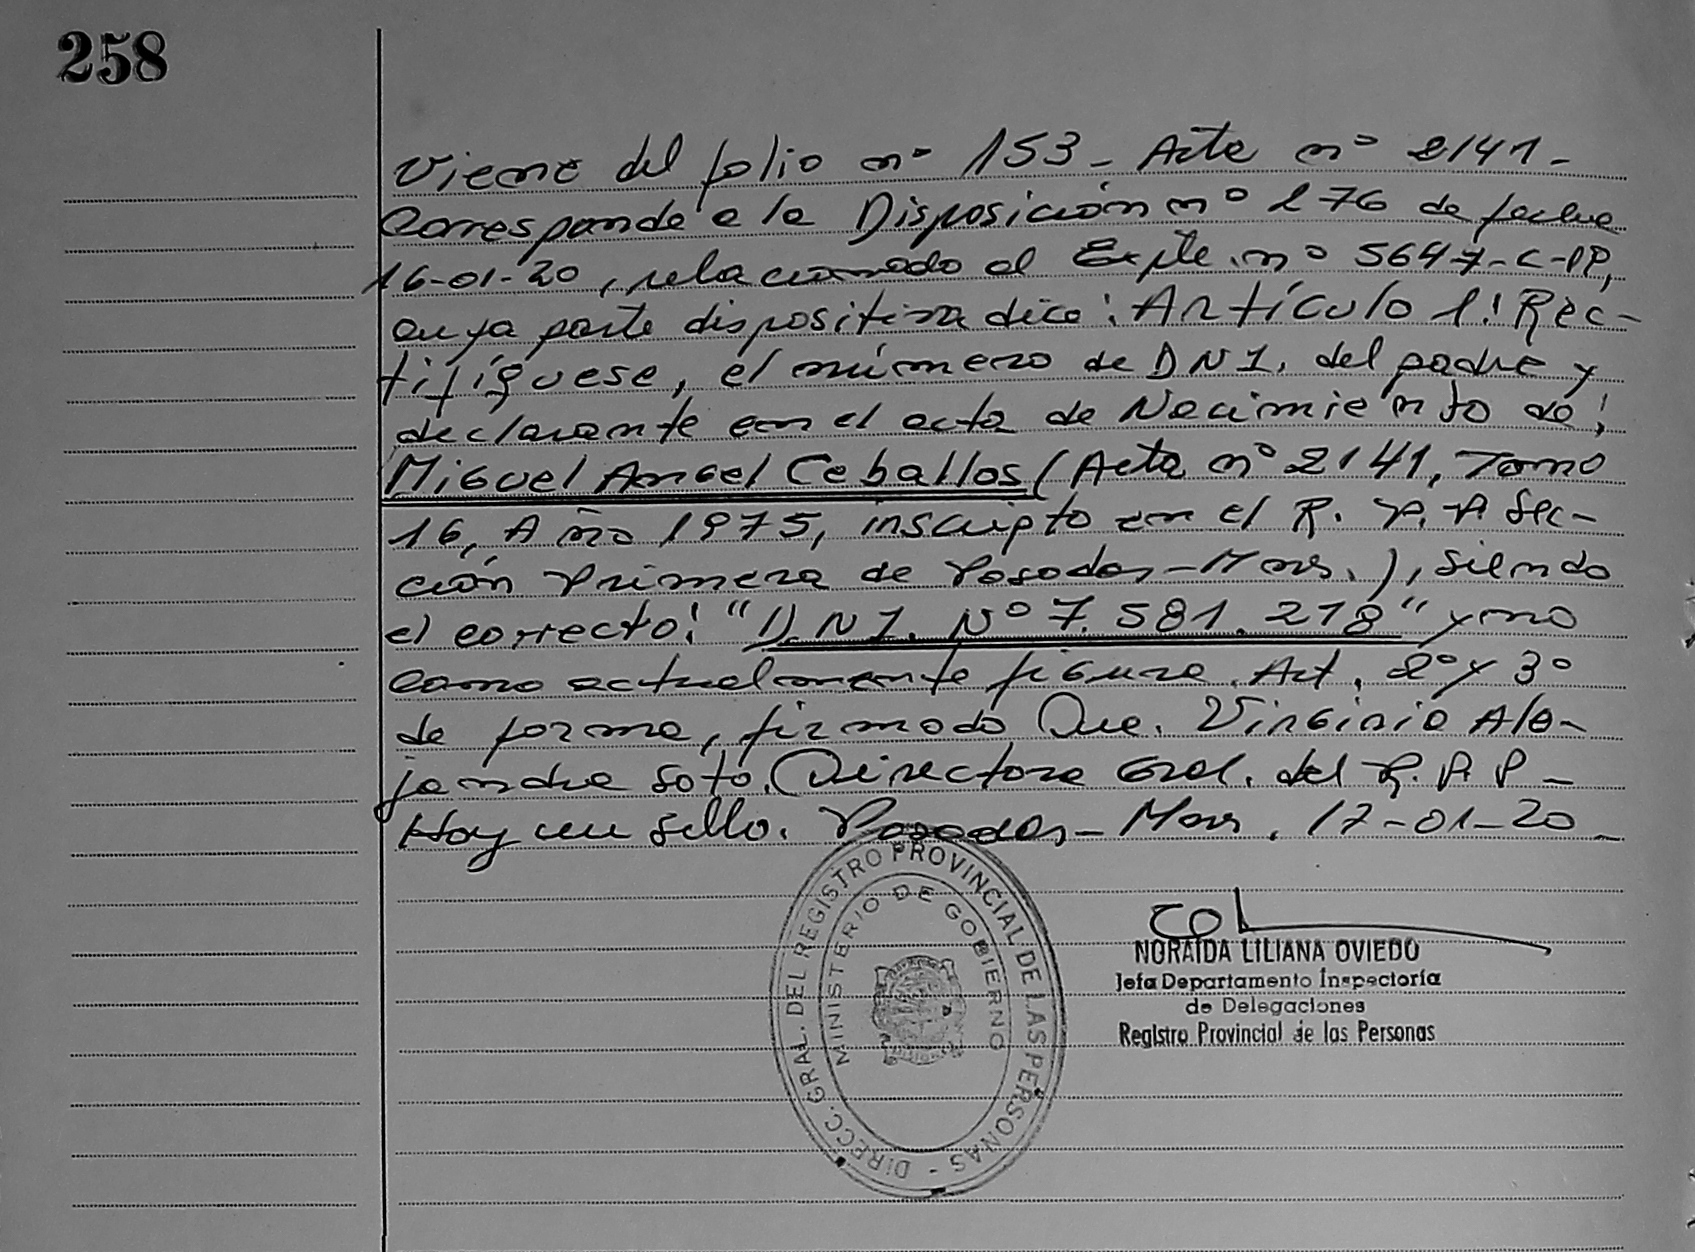 258
Viene del folio nº 153 - Acta nº 2141 -
Corresponde a la Disposición nº 276 de fecha
16-01-20, relacionado al Expte. nº 5647-C-PP,
cuya parte dispositiva dice: Artículo 1: Rec-
tifíquese, el número de DNI. del padre y
declarante en el acta de Nacimiento de:
Miguel Angel Ceballos (Acta nº 2141, Tomo
16, Año 1975, inscripto en el R. P. P Sec-
ción Primera de Posadas - Mnes.), siendo
el correcto: "D.N.I. Nº 7.581.278" y no
como actualmente figura. Art. 2º y 3º
de forma, firmado Dra. Virginia Ale-
jandra Soto. Directora Gral. del R. P. P -
Hay un sello. Posadas - Mnes. 17-01-20 -
DIRECC. GRAL. DEL REGISTRO PROVINCIAL DE LAS PERSONAS -
MINISTERIO DE GOBIERNO
NORAIDA LILIANA OVIEDO
Jefa Departamento Inspectoría
de Delegaciones
Registro Provincial de las Personas